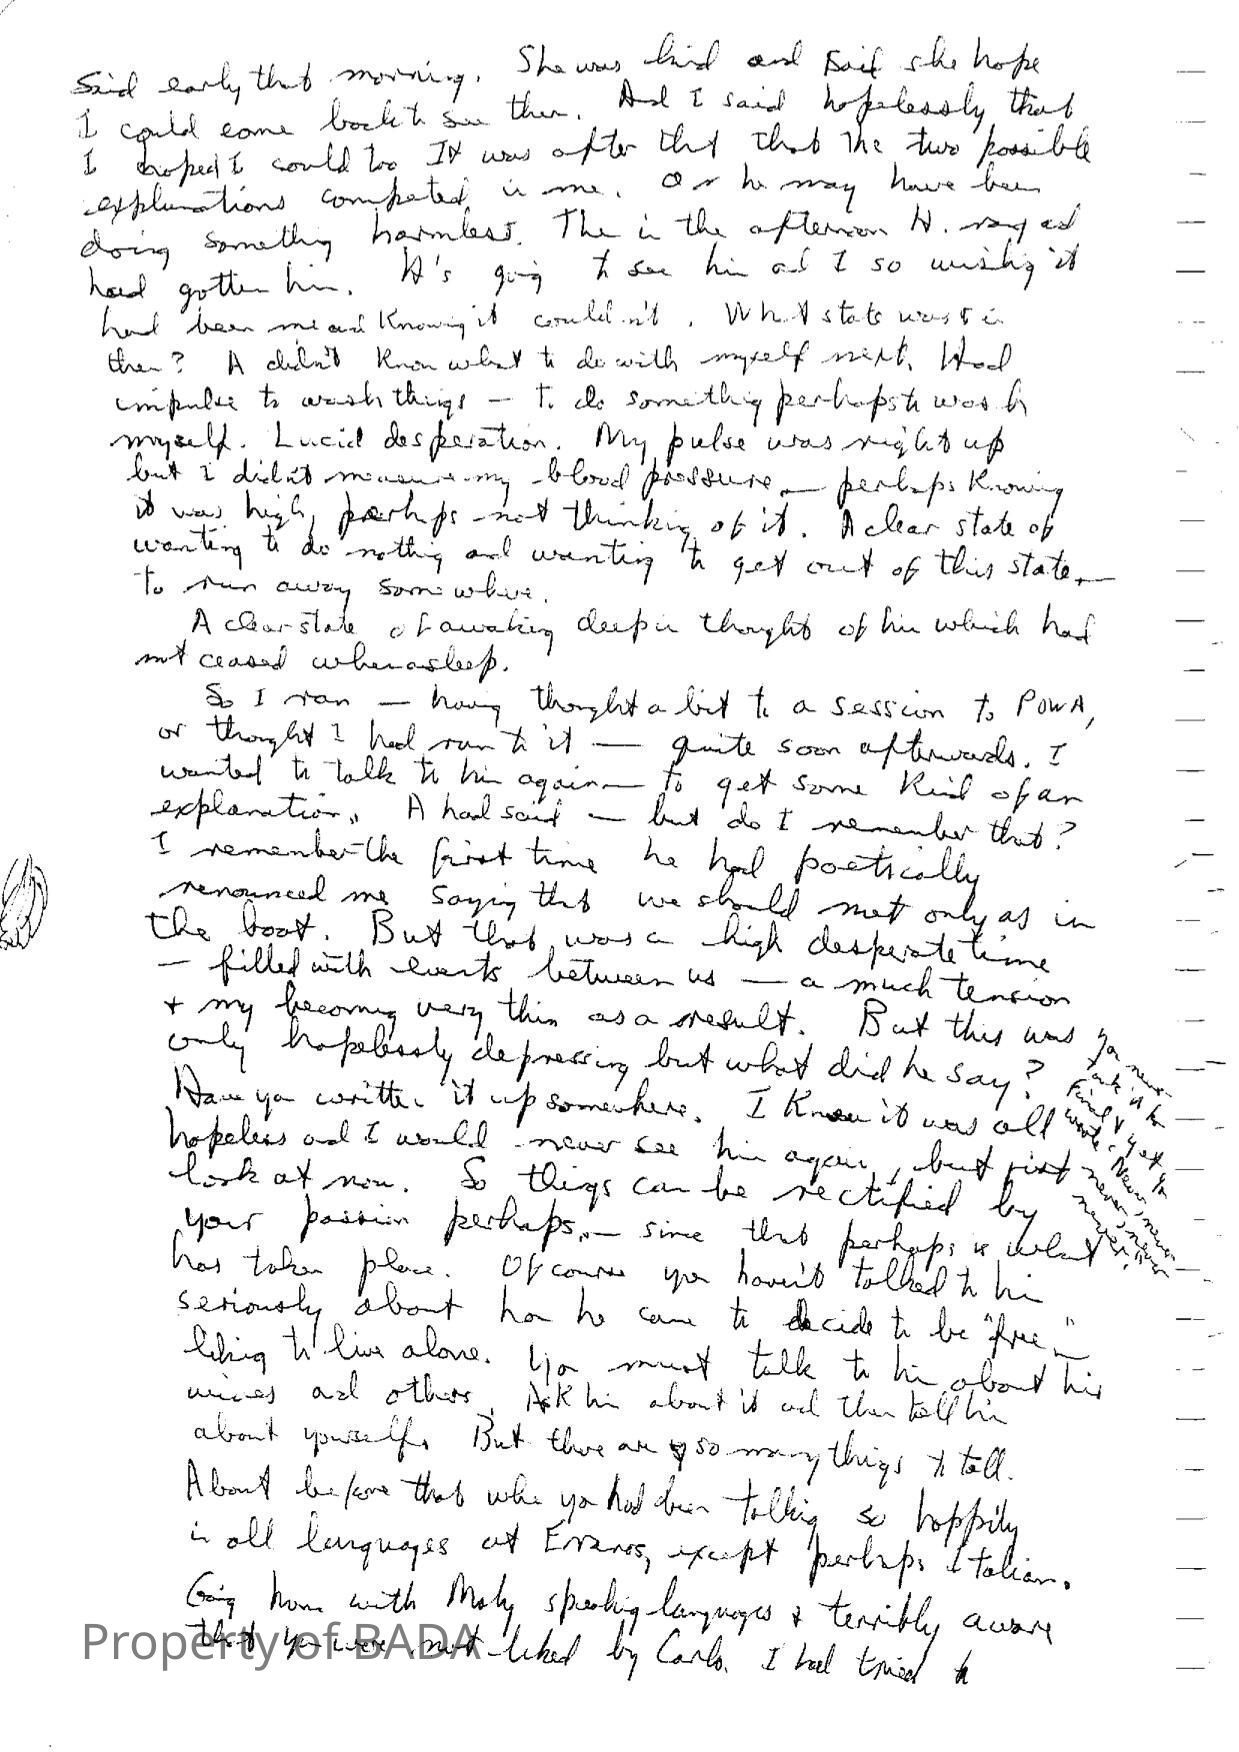 said early that morning. She was kind and said she hope
I could come back to see them. And I said hopelessly that
I hoped I could too It was after that that the two possible
explanations competed in me. Or he may have been
doing something harmless. Then in the afternoon A. rang and
had gotten him. A's going to see him and I so wishing it
had been me and knowing it couldn't. What state was I in
then? A didn't know what to do with myself next. Had
impulse to wash things — to do something perhaps to wash
myself. Lucid desperation. My pulse was right up
but I didn't measure my blood pressure — perhaps knowing
it was high, perhaps not thinking of it. A clear state of
wanting to do nothing and wanting to get out of this state —
to run away somewhere.
A clear state of awaking deep in thought of him which had
not ceased when asleep.
So I ran — having thought a bit to a session to POWA,
or thought I had run to it — quite soon afterwards. I
wanted to talk to him again — to get some kind of an
explanation. A had said — but do I remember that?
I remember the first time he had poetically
renounced me saying that we should met only as in
the boat. But that was a high desperate time
— filled with events between us — a much tension
+ my becoming very thin as a result. But this was
only hopelessly depressing but what did he say?
Have you written it up somewhere. I knew it was all
hopeless and I would never see him again, but just
look at now. So things can be rectified by
your passion perhaps — since that perhaps is what
has taken place. Of course you haven't talked to him
seriously about how he came to decide to be "free" —
liking to live alone. You must talk to him about his
wives and others. Ask him about it and then tell him
about yourself. But there are so many things to tell.
About before that when you had been talking so happily
in all languages at Enzanos, except perhaps Italian.
Going home with Molly speaking languages + terribly aware
that you were not liked by Carlo. I had tried to
you never
never, never
never, never
never.
Property of BADA